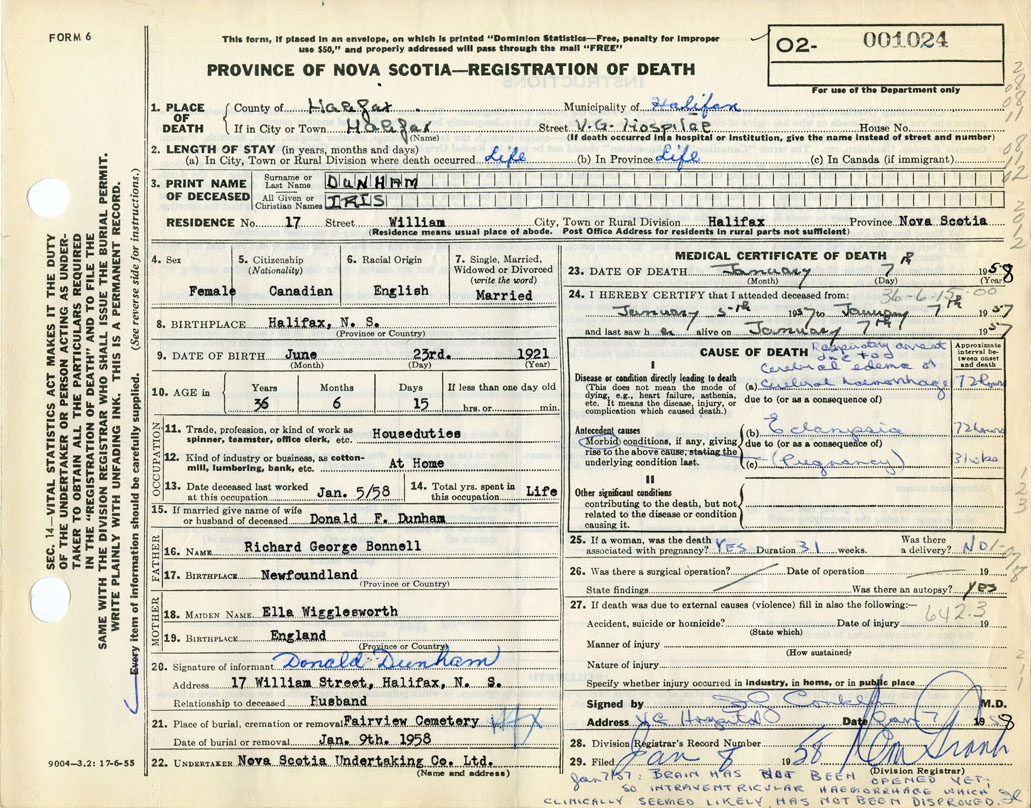 FORM 6
This form, if placed in an envelope, on which is printed "Dominion Statistics—Free, penalty for improper
use $50," and properly addressed will pass through the mail "FREE"
PROVINCE OF NOVA SCOTIA—REGISTRATION OF DEATH
02- 001024
For use of the Department only
SEC. 14—VITAL STATISTICS ACT MAKES IT THE DUTY
OF THE UNDERTAKER OR PERSON ACTING AS UNDER-
TAKER TO OBTAIN ALL THE PARTICULARS REQUIRED
IN THE "REGISTRATION OF DEATH" AND TO FILE THE
SAME WITH THE DIVISION REGISTRAR WHO SHALL ISSUE THE BURIAL PERMIT.
WRITE PLAINLY WITH UNFADING INK. THIS IS A PERMANENT RECORD.
Every item of information should be carefully supplied. (See reverse side for instructions.)
9004-3.2: 17-6-55
1. PLACE OF DEATH County of Halifax Municipality of Halifax
If in City or Town Halifax Street V.G. Hospital House No.
(Name) (If death occurred in a hospital or institution, give the name instead of street and number)
2. LENGTH OF STAY (in years, months and days)
(a) In City, Town or Rural Division where death occurred Life (b) In Province Life (c) In Canada (if immigrant)
3. PRINT NAME OF DECEASED Surname or Last Name DUNHAM
All Given or Christian Names IRIS
RESIDENCE No. 17 Street William City, Town or Rural Division Halifax Province Nova Scotia
(Residence means usual place of abode. Post Office Address for residents in rural parts not sufficient)
4. Sex Female
5. Citizenship (Nationality) Canadian
6. Racial Origin English
7. Single, Married, Widowed or Divorced (write the word) Married
8. BIRTHPLACE Halifax, N. S.
(Province or Country)
9. DATE OF BIRTH June 23rd. 1921
(Month) (Day) (Year)
10. AGE in Years 36 Months 6 Days 15 If less than one day old hrs. or min.
OCCUPATION
11. Trade, profession, or kind of work as spinner, teamster, office clerk, etc. Houseduties
12. Kind of industry or business, as cotton-mill, lumbering, bank, etc. At Home
13. Date deceased last worked at this occupation Jan. 5/58 14. Total yrs. spent in this occupation Life
15. If married give name of wife or husband of deceased Donald F. Dunham
FATHER
16. NAME Richard George Bonnell
17. BIRTHPLACE Newfoundland
(Province or Country)
MOTHER
18. MAIDEN NAME Ella Wigglesworth
19. BIRTHPLACE England
(Province or Country)
20. Signature of informant Donald Dunham
Address 17 William Street, Halifax, N. S.
Relationship to deceased Husband
21. Place of burial, cremation or removal Fairview Cemetery Hfx
Date of burial or removal Jan. 9th. 1958
22. UNDERTAKER Nova Scotia Undertaking Co. Ltd.
(Name and address)
MEDICAL CERTIFICATE OF DEATH
23. DATE OF DEATH January 7th 1958
(Month) (Day) (Year)
36-6-15-00
24. I HEREBY CERTIFY that I attended deceased from:
January 5th 1957 to January 7th 1957
and last saw her alive on January 7th 1957
CAUSE OF DEATH Approximate interval between onset and death
Respiratory arrest
due to
cerebral edema &
I
Disease or condition directly leading to death (a) Cerebral haemorrhage 72 hours
(This does not mean the mode of dying, e.g., heart failure, asthenia, etc. It means the disease, injury, or complication which caused death.)
due to (or as a consequence of)
Antecedent causes (b) Eclampsia 72 hours
Morbid conditions, if any, giving rise to the above cause, stating the underlying condition last.
due to (or as a consequence of)
(c) (Pregnancy) 31 wks
II
Other significant conditions
contributing to the death, but not related to the disease or condition causing it.
25. If a woman, was the death associated with pregnancy? YES Duration 31 weeks. Was there a delivery? NO
26. Was there a surgical operation? Date of operation 19
State findings Was there an autopsy? YES
27. If death was due to external causes (violence) fill in also the following:— 642.3
Accident, suicide or homicide? Date of injury 19
(State which)
Manner of injury
(How sustained)
Nature of injury
Specify whether injury occurred in industry, in home, or in public place
Signed by M.D.
Address V.G. Hospital Date Jan 7 1958
28. Division Registrar's Record Number
29. Filed Jan 8 1958
(Division Registrar)
Jan 7/57: BRAIN HAS NOT BEEN OPENED YET;
SO INTRAVENTRICULAR HAEMORRHAGE WHICH
CLINICALLY SEEMED LIKELY, HAS NOT BEEN DISPROVED.